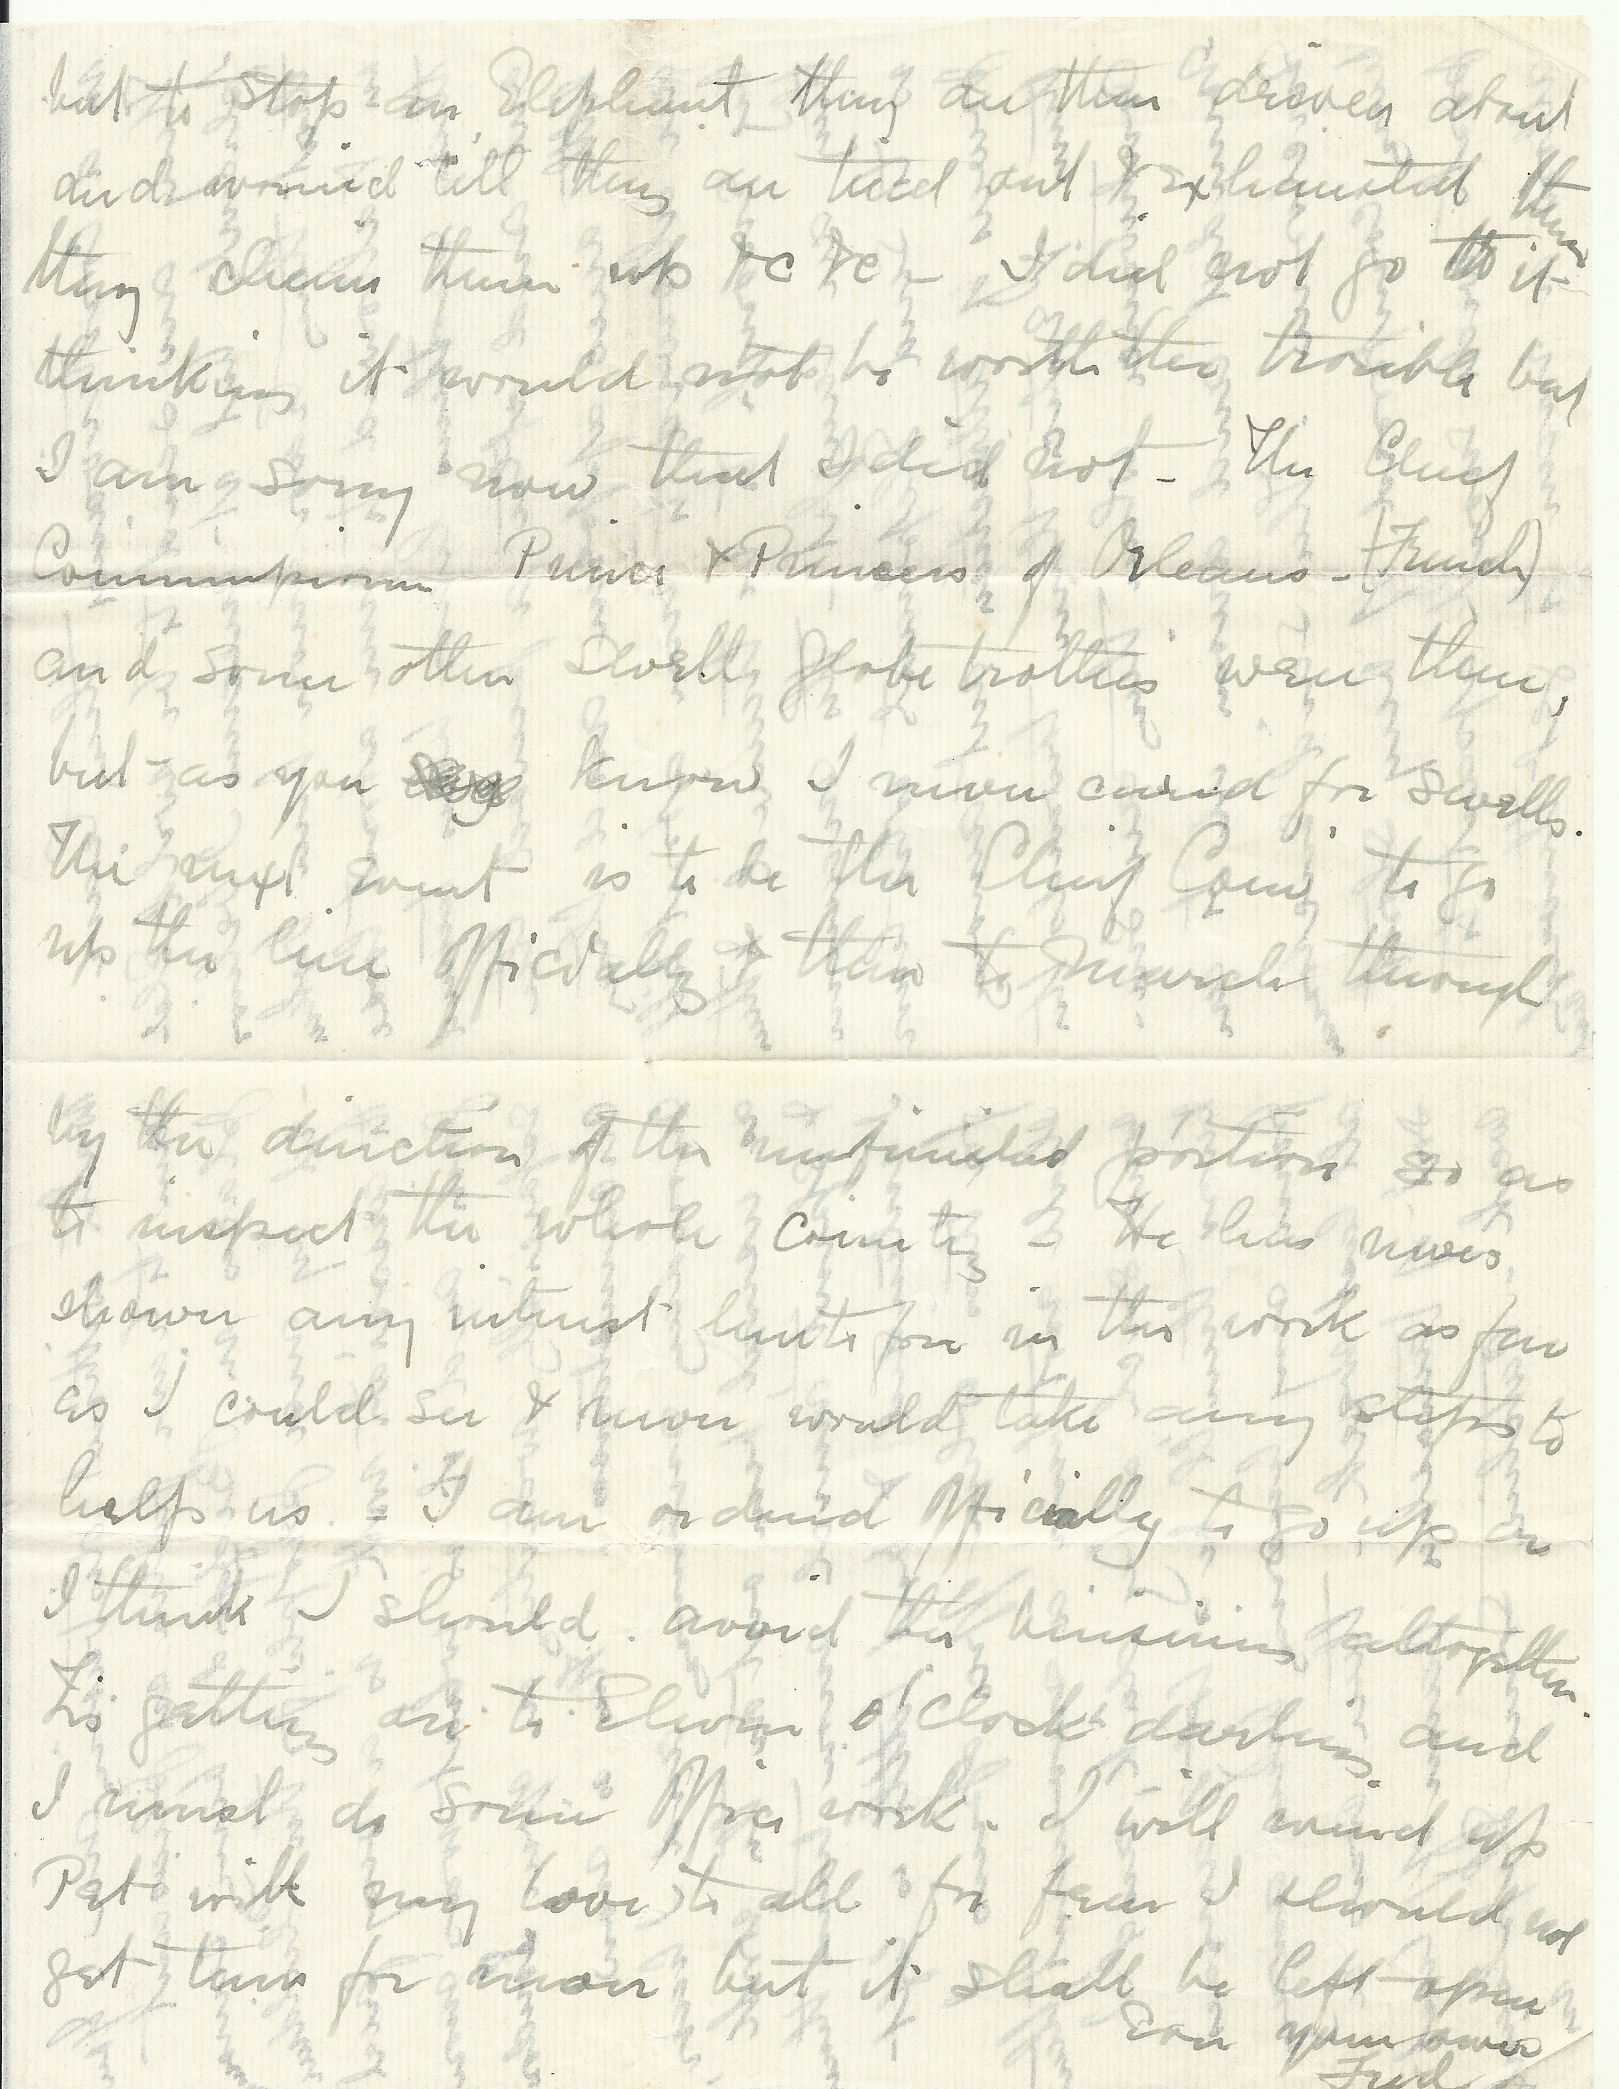 but to stop an Elephant they are then driven about
and worried till they are tired out & exhausted then
they chain them up &c &c - I did not go to it
thinking it would not be worth the trouble but
I am sorry now that I did not - The Chief
Commissioner Prince & Princess of Orleans - (French)
and some other swell globe trotters were there,
but as you know I never cared for swells.
The next event is to be the Chief Com, to go
up the line officially & then to march through
by the direction of the unfinished portion so as
to inspect the whole country - He has never
shown any interest heretofore in the work as far
as I could see & never would take any steps to
help us. - I am ordered officially to go up or
I think I should avoid the business altogether.
Tis getting on to Eleven o'Clock darling and
I must do some office work. I will wind up
Pet with my love to all for fear I should not
get time for more but it shall be left open
Ever your own
Fred